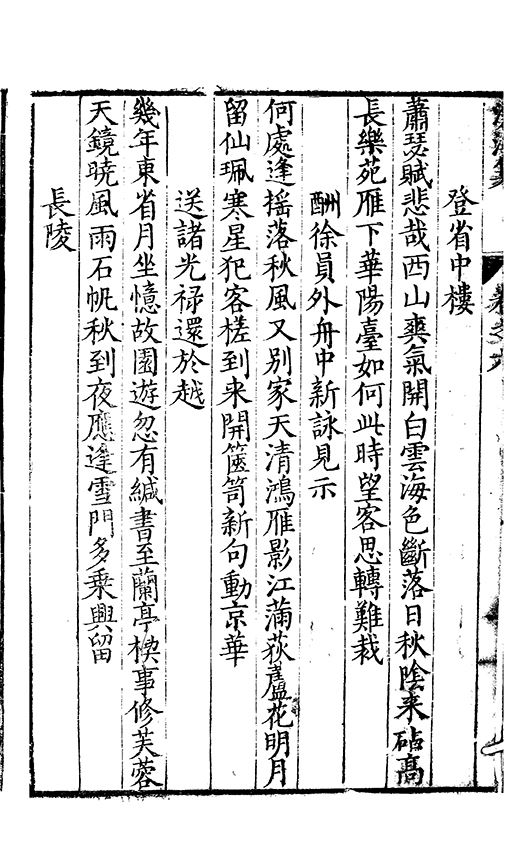 登省中樓
蕭瑟賦悲哉西山爽氣開白雲海色斷落日秋陰来砧高
長樂苑雁下華陽臺如何此時望客思轉難裁
酬徐員外舟中新詠見示
何處逢揺落秋風又別家天清鴻雁影江滿荻蘆花明月
留仙珮寒星犯客槎到来開篋笥新句動京華
送諸光祿還於越
幾年東省月坐憶故園遊忽有緘書至蘭亭楔事修芙蓉
天鏡曉風雨石帆秋到夜應逢雪門多乗興留
長陵